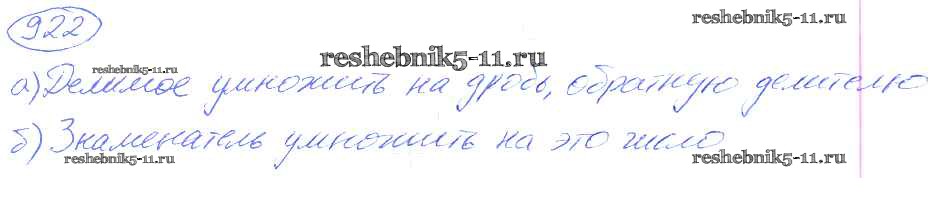 922
reshebnik5-11.ru
reshebnik5-11.ru
reshebnik5-11.ru
а) Делимое умножить на дробь, обратную делителю
б) Знаменатель умножить на это число
reshebnik5-11.ru
reshebnik5-11.ru